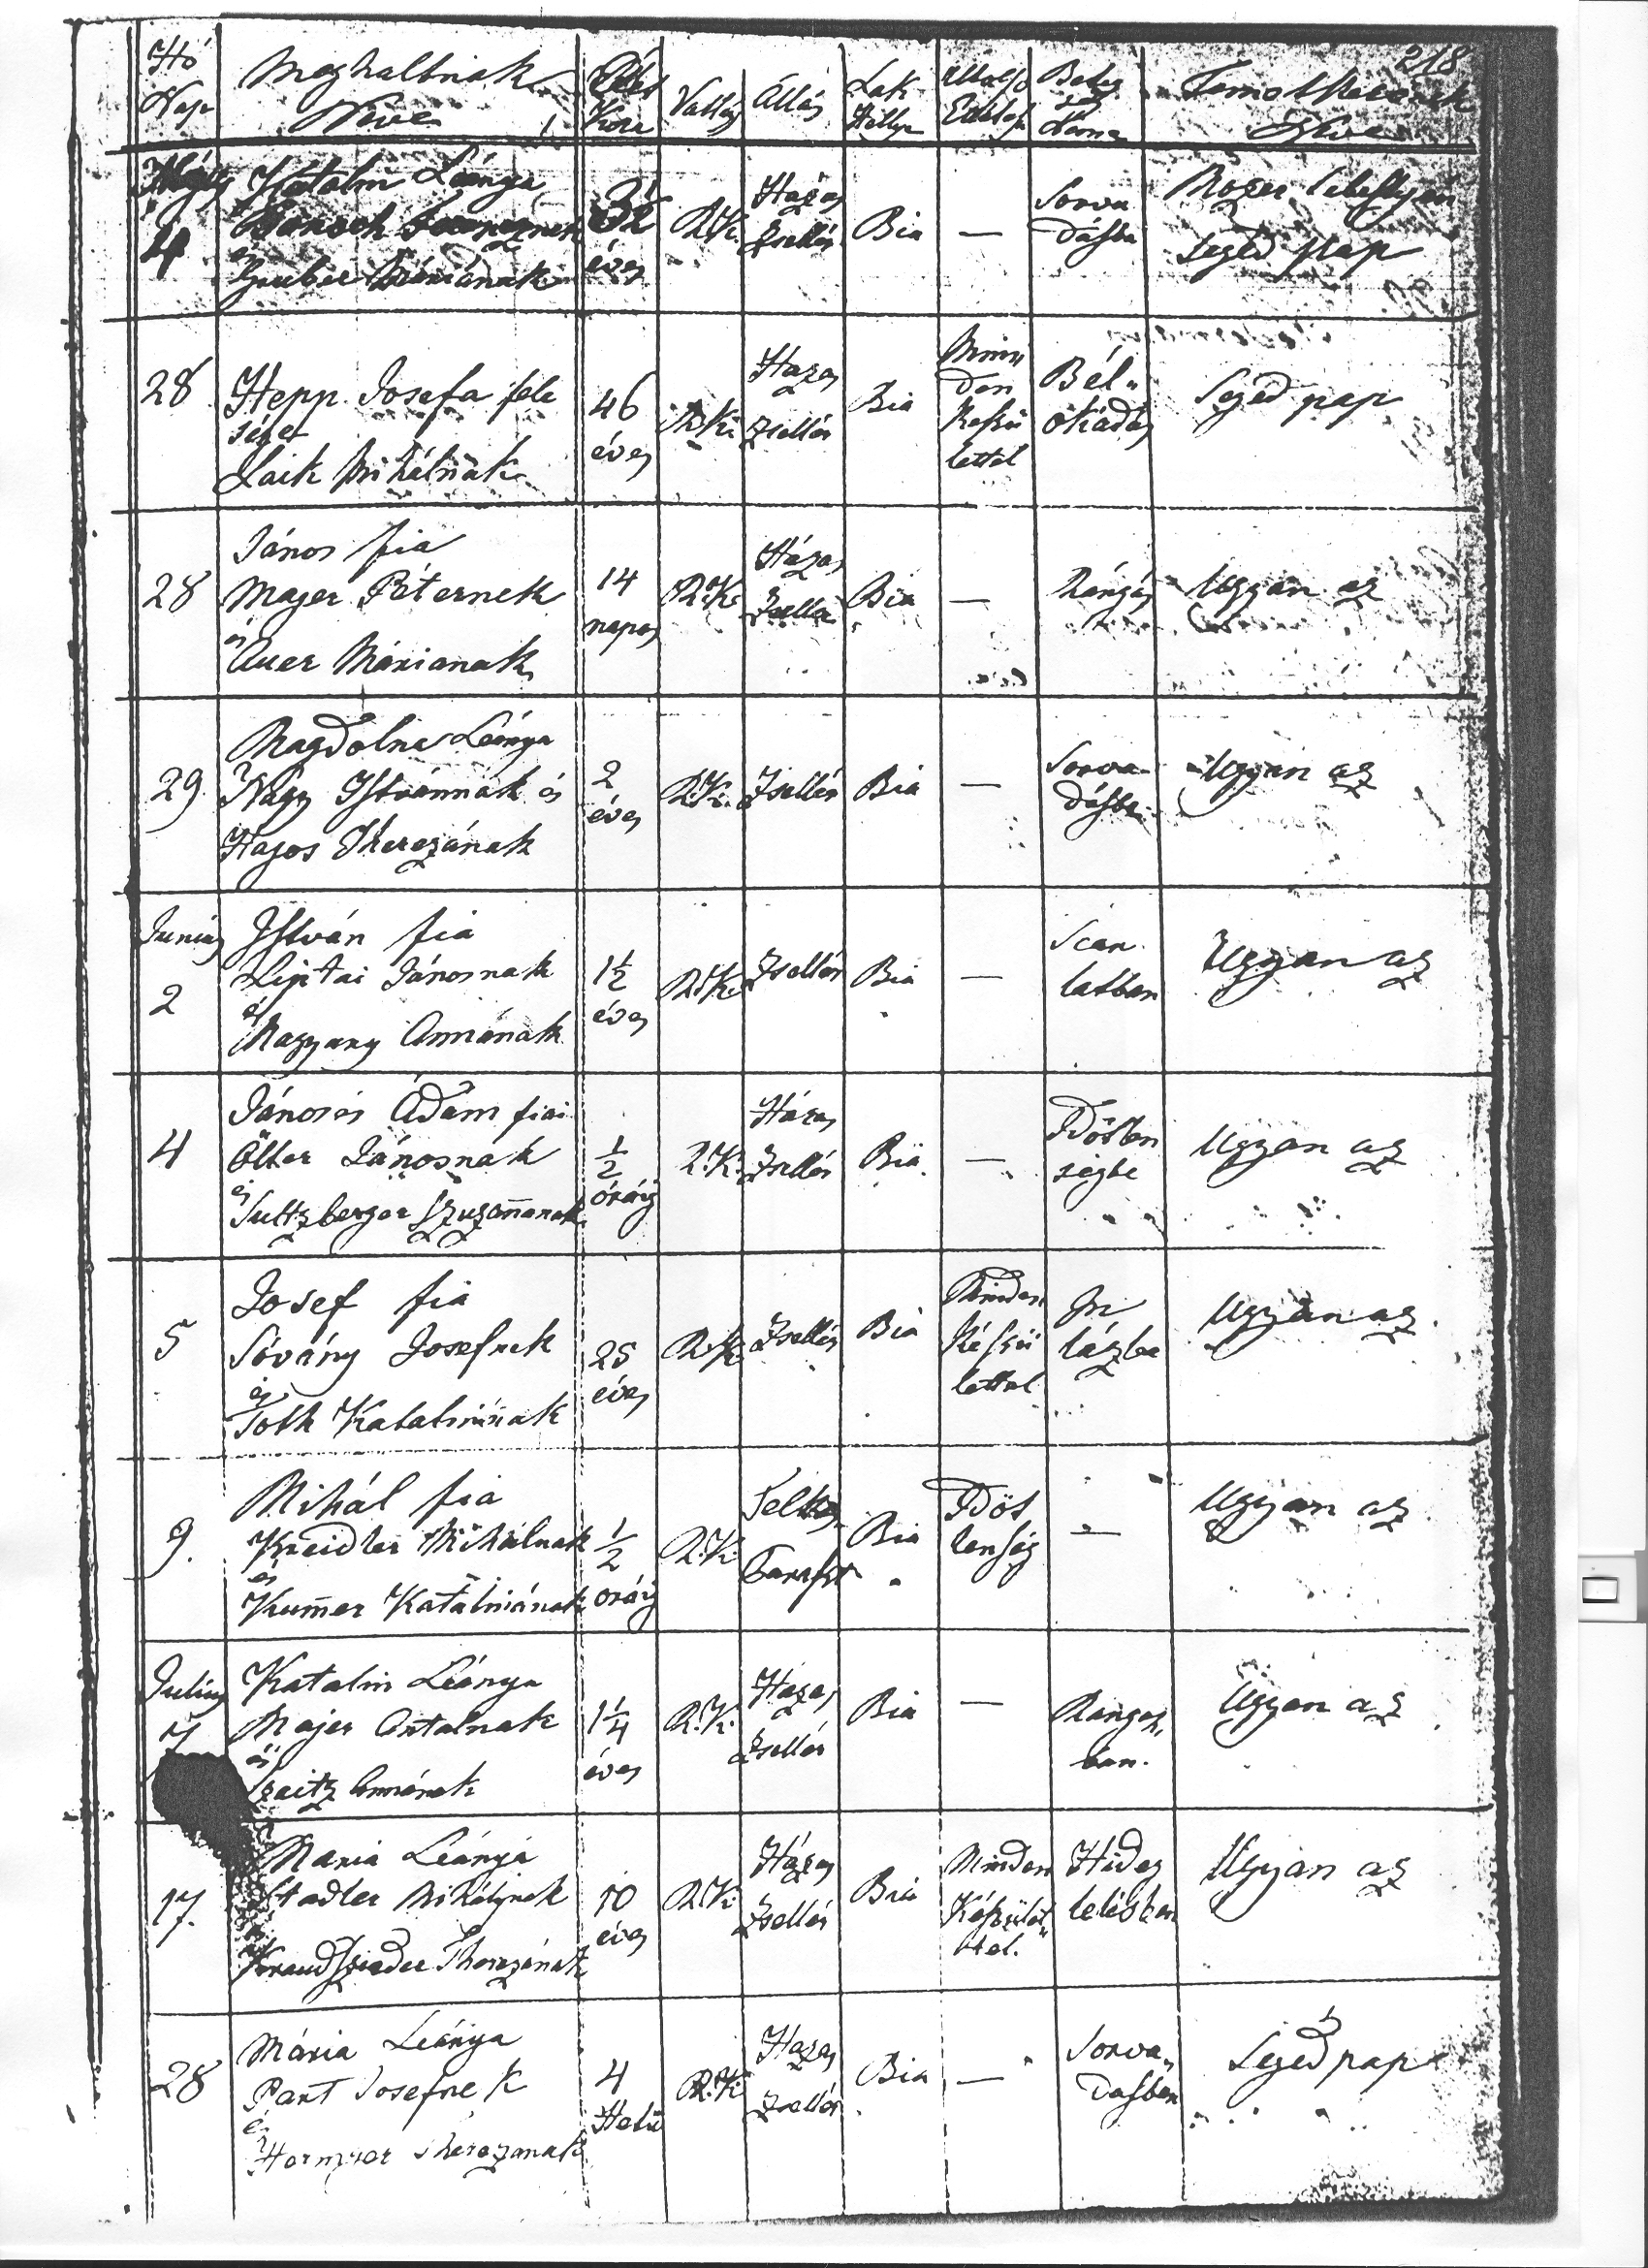 218
Hó Nap
Meghaltnak Neve
Élet Kora
Vallás
Állás
Lak Hellye
Beteg ség Neme
Temettetőnek Neve
4
Katalin Leánya
Ferencznek
és
Gruber Máriának
éves
R.K.
Házas Zsellér
Bia
—
Sorva dásba
Segéd pap
28
Hepp Josefa fele
sége
Laik Mihálnak
46 éves
R.K.
Házas Zsellér
Bia
Minn den Keszü lettel
Bél„ okádás
Segéd pap
28
János fia
Majer Péternek
és
Auer Márianak
14 napos
R.K.
Házas Zsellér
Bia
—
Rángás
Ugyan az
29
Magdolna Leánya
Nagy Istvánnak és
Hajos Therezának
2 éves
R.K.
Zsellér
Bia
—
Sorva dásba
Ugyan az
Junius
2
István fia
Liptai Jánosnak
és
Magyary Annának
1½ éves
R.K.
Zsellér
Bia
—
Scar latban
Ugyan az
4
János és Ádám fiai
Ölter Jánosnak
és
Sultzberger Szuzannanak
½ óráig
R.K.
Házas Zsellér
Bia
—
Idötlen ségbe
Ugyan az
5
Josef fia
Sóvány Josefnek
és
Toth Katalinnak
25 éves
R.K.
Zsellér
Bia
Minden Készü lettel
lázba
Ugyan az
9.
Mihál fia
Kreidler Mihálnak
és
Kum̄er Katalinának
½ oráig
R.K.
Telkes Paraszt
Bia
Idöt lenség
—
Ugyan az
Julius
7
Katalin Leánya
Majer Antalnak
és
Annának
1¼ éves
R.K.
Házas Zsellér
Bia
—
Rangas, ban.
Ugyan az
17.
Maria Leánya
Stadler Mihálynak
Therezának
10 éves
R.K.
Házas Zsellér
Bia
Minden Készület„ tel.
Hideg lelésben
Ugyan az
28
Mária Leánya
Part Josefnek
és
Therezanak
4 Hetü
R.K.
Házas Zsellér
Bia
—
Sorva„ dasban
Segéd pap